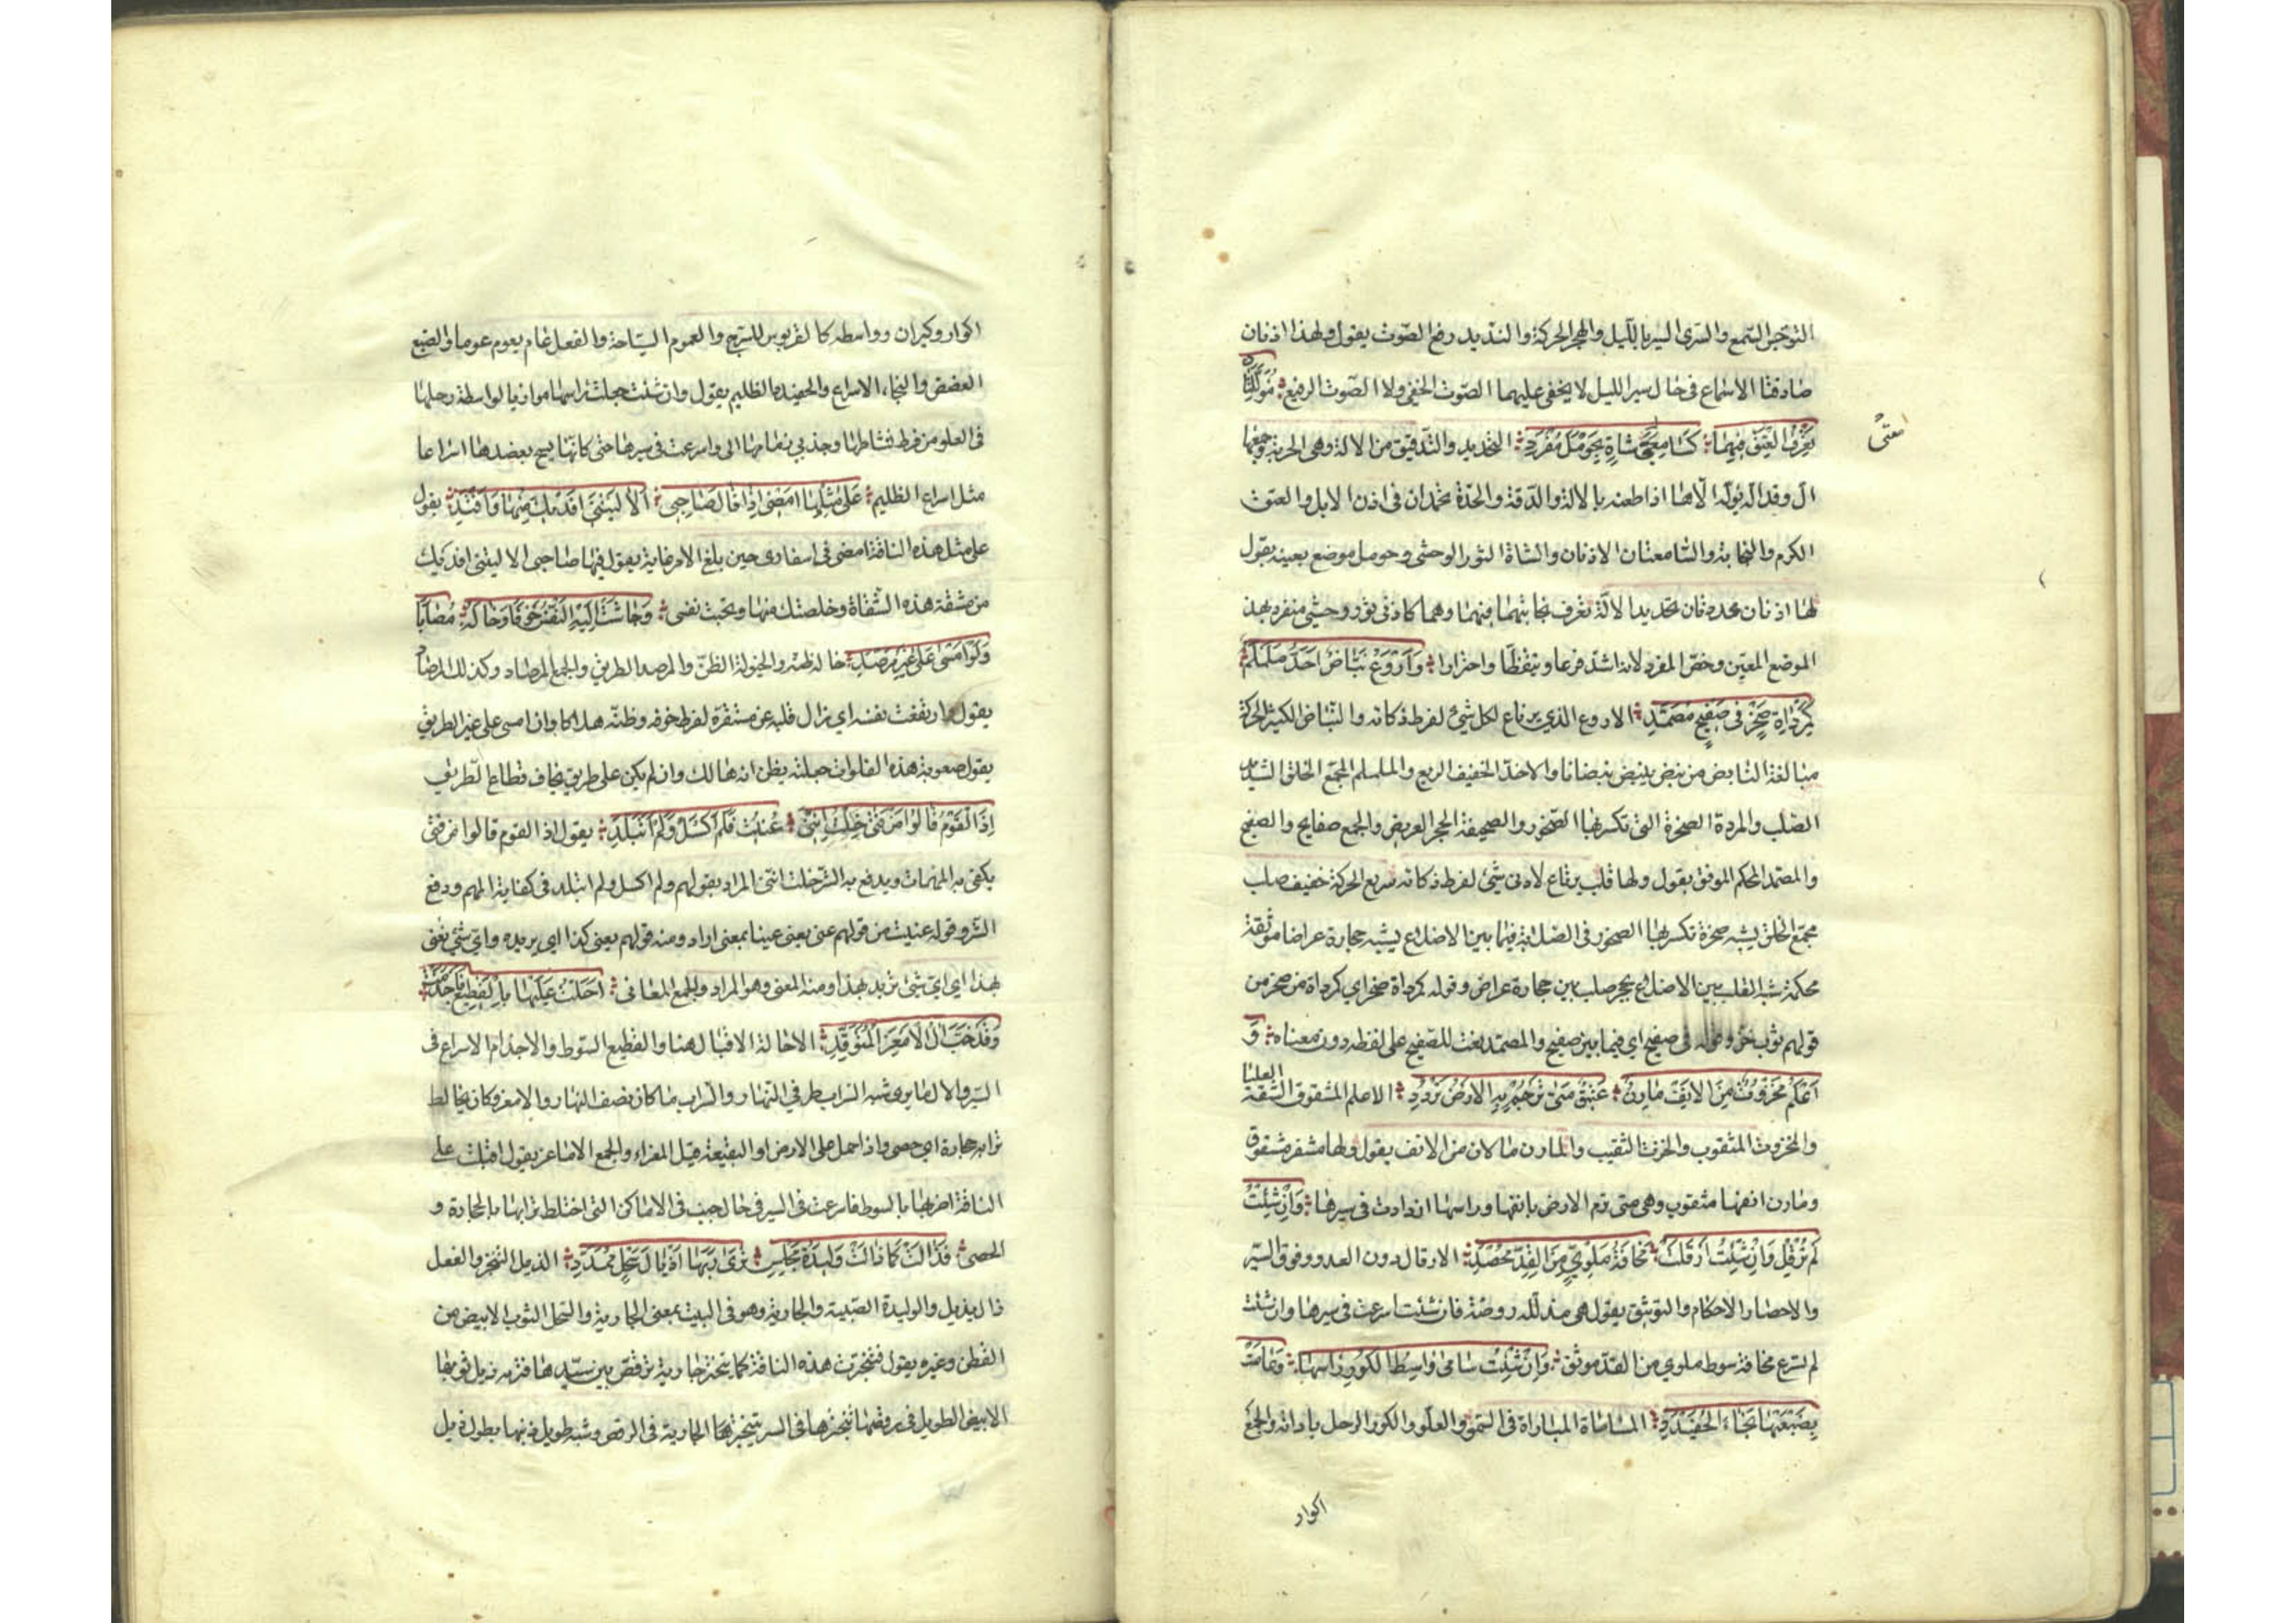 التوجس التسمع والسرى السير بالليل والهجر الحركة والتنديد رفع الصوت يقول ولهذا اذنان
صادقتا الاسماع فى حال سير الليل لا يخفى عليهما الصوت الخفى ولا الصوت الرفيع مؤللتان
تعرف العتق فيهما كسامعتى شاة بحومل مفرد التحديد والتدقيق من الالة وهى الحربة وجمعها
ال وقد اله يؤله الا اذا طعنه بالالة والدقة والحدة تحمدان فى اذن الابل والعتق
الكرم والنجابة والسامعتان الاذنان والشاة الثور الوحشى وحومل موضع بعينه يقول
لها اذنان محددتان تحديد الالة تعرف نجابتهما فيهما وهما كاذنى ثور وحشى منفرد بهذ
الموضع المعين وخص المفرد لانه اشد فزعا وتيقظا واحترازا واروع نباض احذ ململم
كمرداة صخر فى صفيح مصمد الاروع الذي يرتاع لكل شئ لفرط ذكائه والنباض الكثير الحركة
مبالغة النابض من نبض ينبض نبضانا والاحذ الخفيف السريع والململم المجتمع الخلق الشديد
الصلب والمرداة الصخرة التى تكسر بها الصخور والصحيفة الحجر العريض والجمع صفايح والصفيح
والمصمد المحكم الموثق يقول ولها قلب يرتاع لادنى شئ لفرط ذكائه سريع الحركة خفيف صلب
مجتمع الخلق يشبه صخرة تكسر بها الصخور فى الصلابة فيما بين الاضلاع يشبه حجارة عراضا موثقة
محكمة شبه القلب بين الاضلاع بحجر صلب بين حجارة عراض وقوله كمرداة صخر اي كمرداة من صخر من
قولهم ثوب خز وقوله فى صفيح اي فيما بين صفيح والمصمد نعت للصفيح على لفظه دون معناه و
اعلم مخروت من الانف مارن عتيق متى ترجم به الارض تزدد الاعلم المشقوق الشفة العليا
والمخروت المثقوب والخرت الثقب والمارن ما لان من الانف يقول ولها مشفر مشقوق
ومارن انفها مثقوب وهى متى ترم الارض بانفها وراسها ازدادت فى سيرها وان شئت
لم ترقل وان شئت ارقلت مخافة ملوي من القد محصد الارقال دون العدو وفوق السير
والاحصاد الاحكام والتوثيق يقول هى مذللة روضة فان شئت اسرعت فى سيرها وان شئت
لم تسرع مخافة سوط ملوي من القد موثق وان شئت سامى واسط الكور راسها وعامت
بضبعيها نجاء الحفيدد المساماة المباراة فى السمو والعلو والكور الرحل باداته والجمع
اكوار
اكوار وكيران وواسطه كالقربوس للسرج والعموم السباحة والفعل عام يعوم عوما والضبع
العضد والنجاء الاسراع والحفيدد الظليم يقول وان شئت جعلت راسها موازيا لواسطة رحلها
فى العلو من فرط نشاطها وجذبي زمامها الى واسرعت فى سيرها حتى كانها تسبح بعضديها اسراعا
مثل اسراع الظليم على مثلها امضى اذا قال صاحبى الا ليتنى افديك منها وافتدي يقول
على مثل هذه الناقة امضى فى اسفارى حين بلغ الامر غايته يقول فيها صاحبى الا ليتنى افديك
من مشقة هذه الشقة وخلصتك منها ونجيت نفسى وجاشت اليه النفس خوفا وخاله مصابا
ولو امسى على غير مرصد خاله ظنه والخيولة الظن والمرصد الطريق والجمع المراصد وكذلك المرصاد
يقول ارتفعت نفسه اي زال قلبه عن مستقره لفرط خوفه وظنه هالكا وان امسى على غير الطريق
يقول صعوبة هذه الفلوات جعلته يظن انه هالك وان لم يكن على طريق يخاف قطاع الطريق
اذا القوم قالوا من فتى خلت اننى عنيت فلم اكسل ولم اتبلد يقول اذا القوم قالوا من فتى
يكفى به المهمات ويدفع به الشر خلت اننى المراد بقولهم ولم اكسل ولم اتبلد فى كفاية المهم ودفع
الشر وقوله عنيت من قولهم عنى يعنى عينا بمعنى اراد ومنه قولهم يعنى كذا اي يريده واي شئ يعنى
بهذا اي اي شئ يريد بهذا ومنه المعنى وهو المراد والجمع المعانى احلت عليها بالقطيع فاجذمت
وقد خب ال الامعز المتوقد الاحالة الاقبال هنا والقطيع السوط والاجذام الاسراع فى
السير والال ما يرى شبه السراب طرفي النهار والسراب ما كان نصف النهار والامعز مكان يخالط
ترابه حجارة اي حصى واذا حمل على الارض او البقيعة قيل المعزاء والجمع الاماعز يقول اقبلت على
الناقة اضربها بالسوط فاسرعت فى السير فى حال خبب فى الاماكن التى اختلط ترابها بالحجارة و
الحصى فذالت كما ذالت وليدة مجلس ترى ربها اذيال سحل ممدد الذيل التبختر والفعل
ذال يذيل والوليدة الصبية والجارية وهو فى البيت بمعنى الجارية والسحل الثوب الابيض من
القطن وغيره يقول فتبخترت هذه الناقة كما تبختر جارية ترقص بين سيدها فتريه ذيل ثوبها
الابيض الطويل فى رقصها شبه تبخترها فى السير بتبختر الجارية فى الرقص وشبه طويل ذنبها بطول ذيل